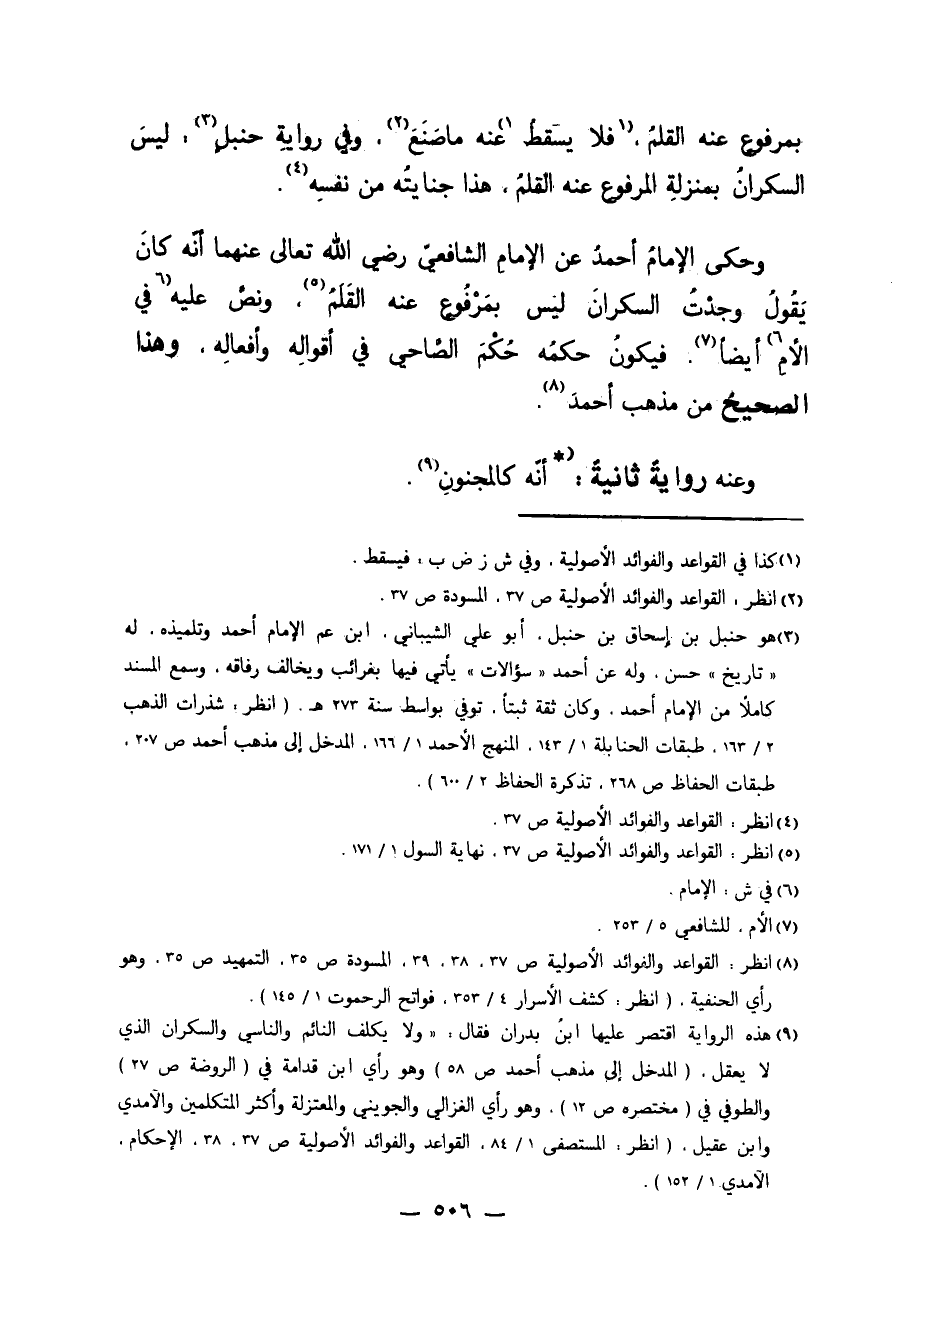 بمرفوع عنه القلمُ ،(١فلا يسَقطُ ١)عنه ماصَنَعَ(٢) ، وفي روايةِ حنبلٍ(٣) ، ليسَ
السكرانُ بمنزلةِ المرفوع عنه القلمُ ، هذا جنايتُه من نفسِه(٤) .
وحكى الإمامُ أحمدُ عن الإمامِ الشافعيّ رضي الله تعالى عنهما أنّه كانَ
يَقُولُ وجدْتُ السكرانَ ليَس بمَرْفُوعٍ عنه القَلَمُ(٥) ، ونصَّ عليه(٦ في
الأمِ٦) أيضاً(٧) . فيكونُ حكمُه حُكْمَ الصَّاحي في أقوالِه وأفعالِه ، وهذا
الصحيحُ من مذهب أحمدَ(٨) .
وعنه روايةً ثانيةً :(* أنّه كالمجنونِ(٩) .
(١) كذا في القواعد والفوائد الأصولية ، وفي ش ز ض ب : فيسقط .
(٢) انظر : القواعد والفوائد الأصولية ص ٣٧ ، المسودة ص ٣٧ .
(٣) هو حنبل بن إسحاق بن حنبل ، أبو علي الشيباني ، ابن عم الإمام أحمد وتلميذه ، له
« تاريخ » حسن ، وله عن أحمد « سؤالات » يأتي فيها بغرائب ويخالف رفاقه ، وسمع المسند
كاملاً من الإمام أحمد ، وكان ثقة ثبتاً ، توفي بواسط سنة ٢٧٣ هـ . ( انظر : شذرات الذهب
٢ / ١٦٣ ، طبقات الحنابلة ١ / ١٤٣ ، المنهج الأحمد ١ / ١٦٦ ، المدخل إلى مذهب أحمد ص ٢٠٧ ،
طبقات الحفاظ ص ٢٦٨ ، تذكرة الحفاظ ٢ / ٦٠٠ ) .
(٤) انظر : القواعد والفوائد الأصولية ص ٣٧ .
(٥) انظر : القواعد والفوائد الأصولية ص ٣٧ ، نهاية السول ١ / ١٧١ .
(٦) في ش : الإمام .
(٧) الأم ، للشافعي ٥ / ٢٥٣ .
(٨) انظر : القواعد والفوائد الأصولية ص ٣٧ ، ٣٨ ، ٣٩ ، المسودة ص ٣٥ ، التمهيد ص ٣٥ ، وهو
رأي الحنفية ، ( انظر : كشف الأسرار ٤ / ٣٥٣ ، فواتح الرحموت ١ / ١٤٥ ) .
(٩) هذه الرواية اقتصر عليها ابنُ بدران فقال : « ولا يكلف النائم والناسي والسكران الذي
لا يعقل ، ( المدخل إلى مذهب أحمد ص ٥٨ ) وهو رأي ابن قدامة في ( الروضة ص ٢٧ )
والطوفي في ( مختصره ص ١٢ ) ، وهو رأي الغزالي والجويني والمعتزلة وأكثر المتكلمين والآمدي
وابن عقيل ، ( انظر : المستصفى ١ / ٨٤ ، القواعد والفوائد الأصولية ص ٣٧ ، ٣٨ ، الإحكام ،
الآمدي ١ / ١٥٢ ) .
— ٥٠٦ —